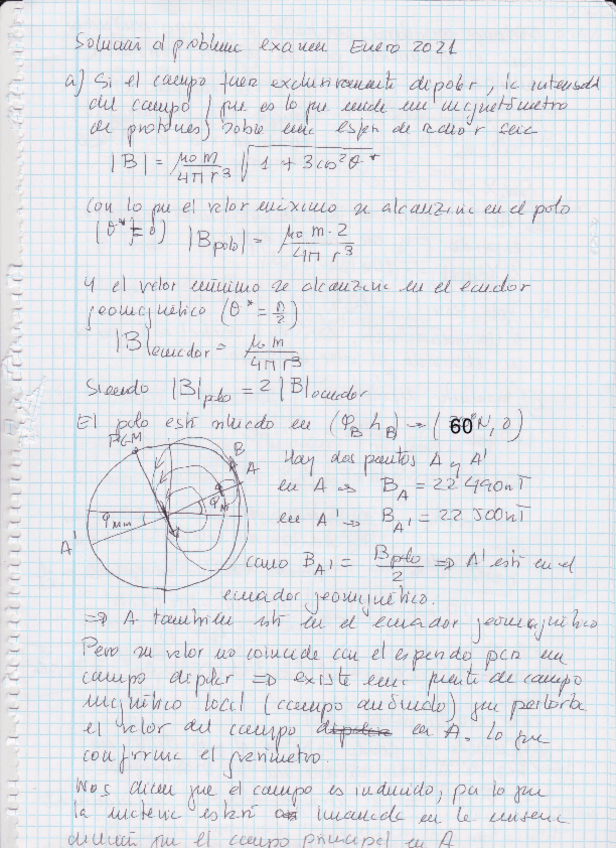 Solución al problema examen Enero 2021
a) Si el campo fuera exclusivamente dipolar, la intensidad
del campo (que es lo que mide un magnetómetro
de protones) sobre una esfera de radio r sería
|B| = μ₀ m / 4π r³ √(1 + 3cos²θ*)
con lo que el valor máximo se alcanzaría en el polo
(θ* = 0) |B polo| = μ₀ m · 2 / 4π r³
Y el valor mínimo se alcanzaría en el ecuador
geomagnético (θ* = π/2)
|B| ecuador = μ₀ m / 4π r³
Siendo |B| polo = 2 |B| ecuador
El polo está situado en (φB, λB) → (60°N, 0)
PGM
B
A
φM
φMM
A'
Hay dos puntos A y A'
en A → B_A = 22 490 nT
en A' → B_A' = 22 500 nT
como B_A' = B polo / 2 ⇒ A' está en el
ecuador geomagnético.
⇒ A también está en el ecuador geomagnético
Pero su valor no coincide con el esperado para un
campo dipolar ⇒ existe una fuente de campo
magnético local (campo anómalo) que perturba
el valor del campo dipolar en A. lo que
confirma el gravímetro.
Nos dicen que el campo es inducido, por lo que
la materia estará imanada en la misma
dirección que el campo principal en A